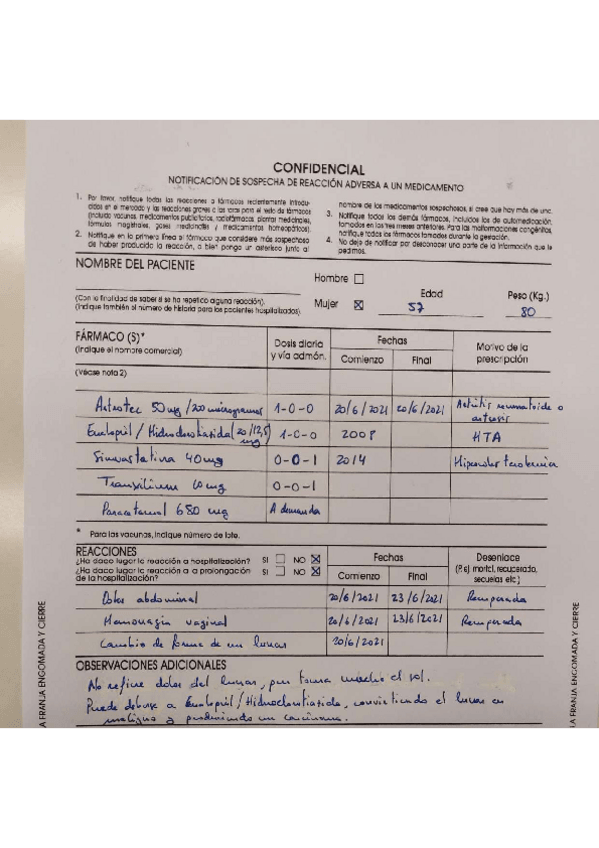 CONFIDENCIAL
NOTIFICACIÓN DE SOSPECHA DE REACCIÓN ADVERSA A UN MEDICAMENTO
1. Por favor, notifique todas las reacciones a fármacos recientemente introdu-
cidos en el mercado y las reacciones graves o las raras para el resto de fármacos
(incluido vacunas, medicamentos publicitarios, radiofármacos, plantas medicinales,
fórmulas magistrales, gases medicinales y medicamentos homeopáticos).
2. Notifique en la primera línea el fármaco que considere más sospechoso
de haber producido la reacción, o bien ponga un asterisco junto al
nombre de los medicamentos sospechosos, si cree que hay más de uno.
3. Notifique todos los demás fármacos, incluidos los de automedicación,
tomados en los tres meses anteriores. Para las malformaciones congénitas,
notifique todos los fármacos tomados durante la gestación.
4. No deje de notificar por desconocer una parte de la información que le
pedimos.
NOMBRE DEL PACIENTE
(Con la finalidad de saber si se ha repetido alguna reacción).
(Indique también el número de historia para los pacientes hospitalizados).
Hombre
Mujer ☒
Edad
57
Peso (Kg.)
80
FÁRMACO (S)*
(Indique el nombre comercial)
(Véase nota 2)
Dosis diaria
y vía admón.
Fechas
Comienzo Final
Motivo de la
prescripción
Artrotec 50 mg/200 microgramos 1-0-0 20/6/2021 20/6/2021 Artritis reumatoide o
artrosis
Enalapril / Hidroclorotiazida (20/12,5 1-0-0 2008 HTA
mg
Simvastatina 40 mg 0-0-1 2014 Hipercolesterolemia
Tranxilium 10 mg 0-0-1
Paracetamol 650 mg A demanda
* Para las vacunas, indique número de lote.
REACCIONES
¿Ha dado lugar la reacción a hospitalización? SI NO ☒
¿Ha dado lugar la reacción a a prolongación SI NO ☒
de la hospitalización?
Fechas
Comienzo Final
Desenlace
(P. ej. mortal, recuperado,
secuelas etc.)
Dolor abdominal 20/6/2021 23/6/2021 Recuperada
Hemorragia vaginal 20/6/2021 23/6/2021 Recuperada
Cambio de forma de un lunar 20/6/2021
OBSERVACIONES ADICIONALES
No refiere dolor del lunar, pero toma mucho el sol.
Puede deberse a Enalapril/Hidroclorotiazida, convirtiendo el lunar en
maligno y produciendo un carcinoma.
LA FRANJA ENGOMADA Y CIERRE
LA FRANJA ENGOMADA Y CIERRE